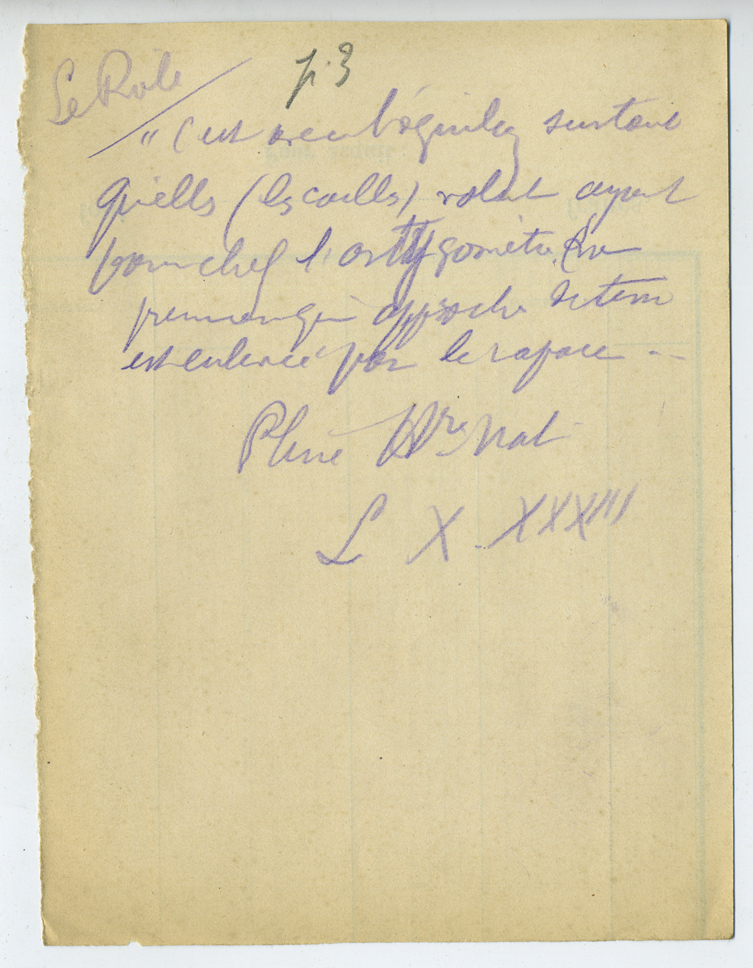 Le Role p. 3
" C'est avec surtout
qu'elles (les cailles) volent ayant
pour chef l'ortygomètre. La
première qui approche de terre
est enlevée par le rapace —
Pline Hre Nat
L X. XXXIII